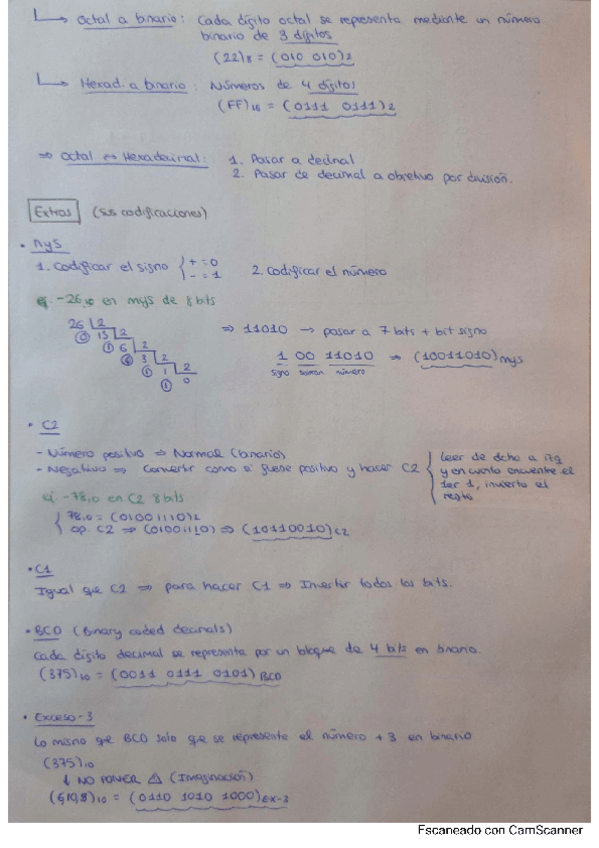 ↳ Octal a binario: Cada dígito octal se representa mediante un número
binario de 3 dígitos
(22)8 = (010 010)2
↳ Hexad. a binario: Números de 4 dígitos
(FF)16 = (0111 0111)2
⇒ Octal ↔ Hexadecimal: 1. Pasar a decimal
2. Pasar de decimal a objetivo por división.
Extras (sus codificaciones)
• MyS
1. Codificar el signo { + = 0
- = 1
2. Codificar el número
ej. -26,10 en mys de 8 bits
26 2
0 13 2
1 6 2
0 3 2
1 1 2
1 0
⇒ 11010 → pasar a 7 bits + bit signo
1 00 11010 ⇒ (10011010)mys
signo número
• C2
- Número positivo ⇒ Normal (binario)
- Negativo ⇒ Convertir como si fuese positivo y hacer C2 { leer de dcha a izq
y en cuanto encuentre el
1er 1, invierto el
resto
ej. -78,10 en C2 8 bits
{ 78,10 = (01001110)2
op. C2 ⇒ (01001110) ⇒ (10110010)C2
• C1
Igual que C2 ⇒ para hacer C1 ⇒ Invertir todos los bits.
• BCD (Binary coded decimals)
Cada dígito decimal se representa por un bloque de 4 bits en binario.
(375)10 = (0011 0111 0101)BCD
• Exceso-3
Lo mismo que BCD solo que se represente el número +3 en binario
(375)10
↓ NO PONER ⚠ (Imaginación)
(6,10,8)10 = (0110 1010 1000)EX-3
Escaneado con CamScanner